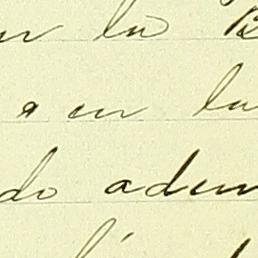 en la B
a en la
do adem